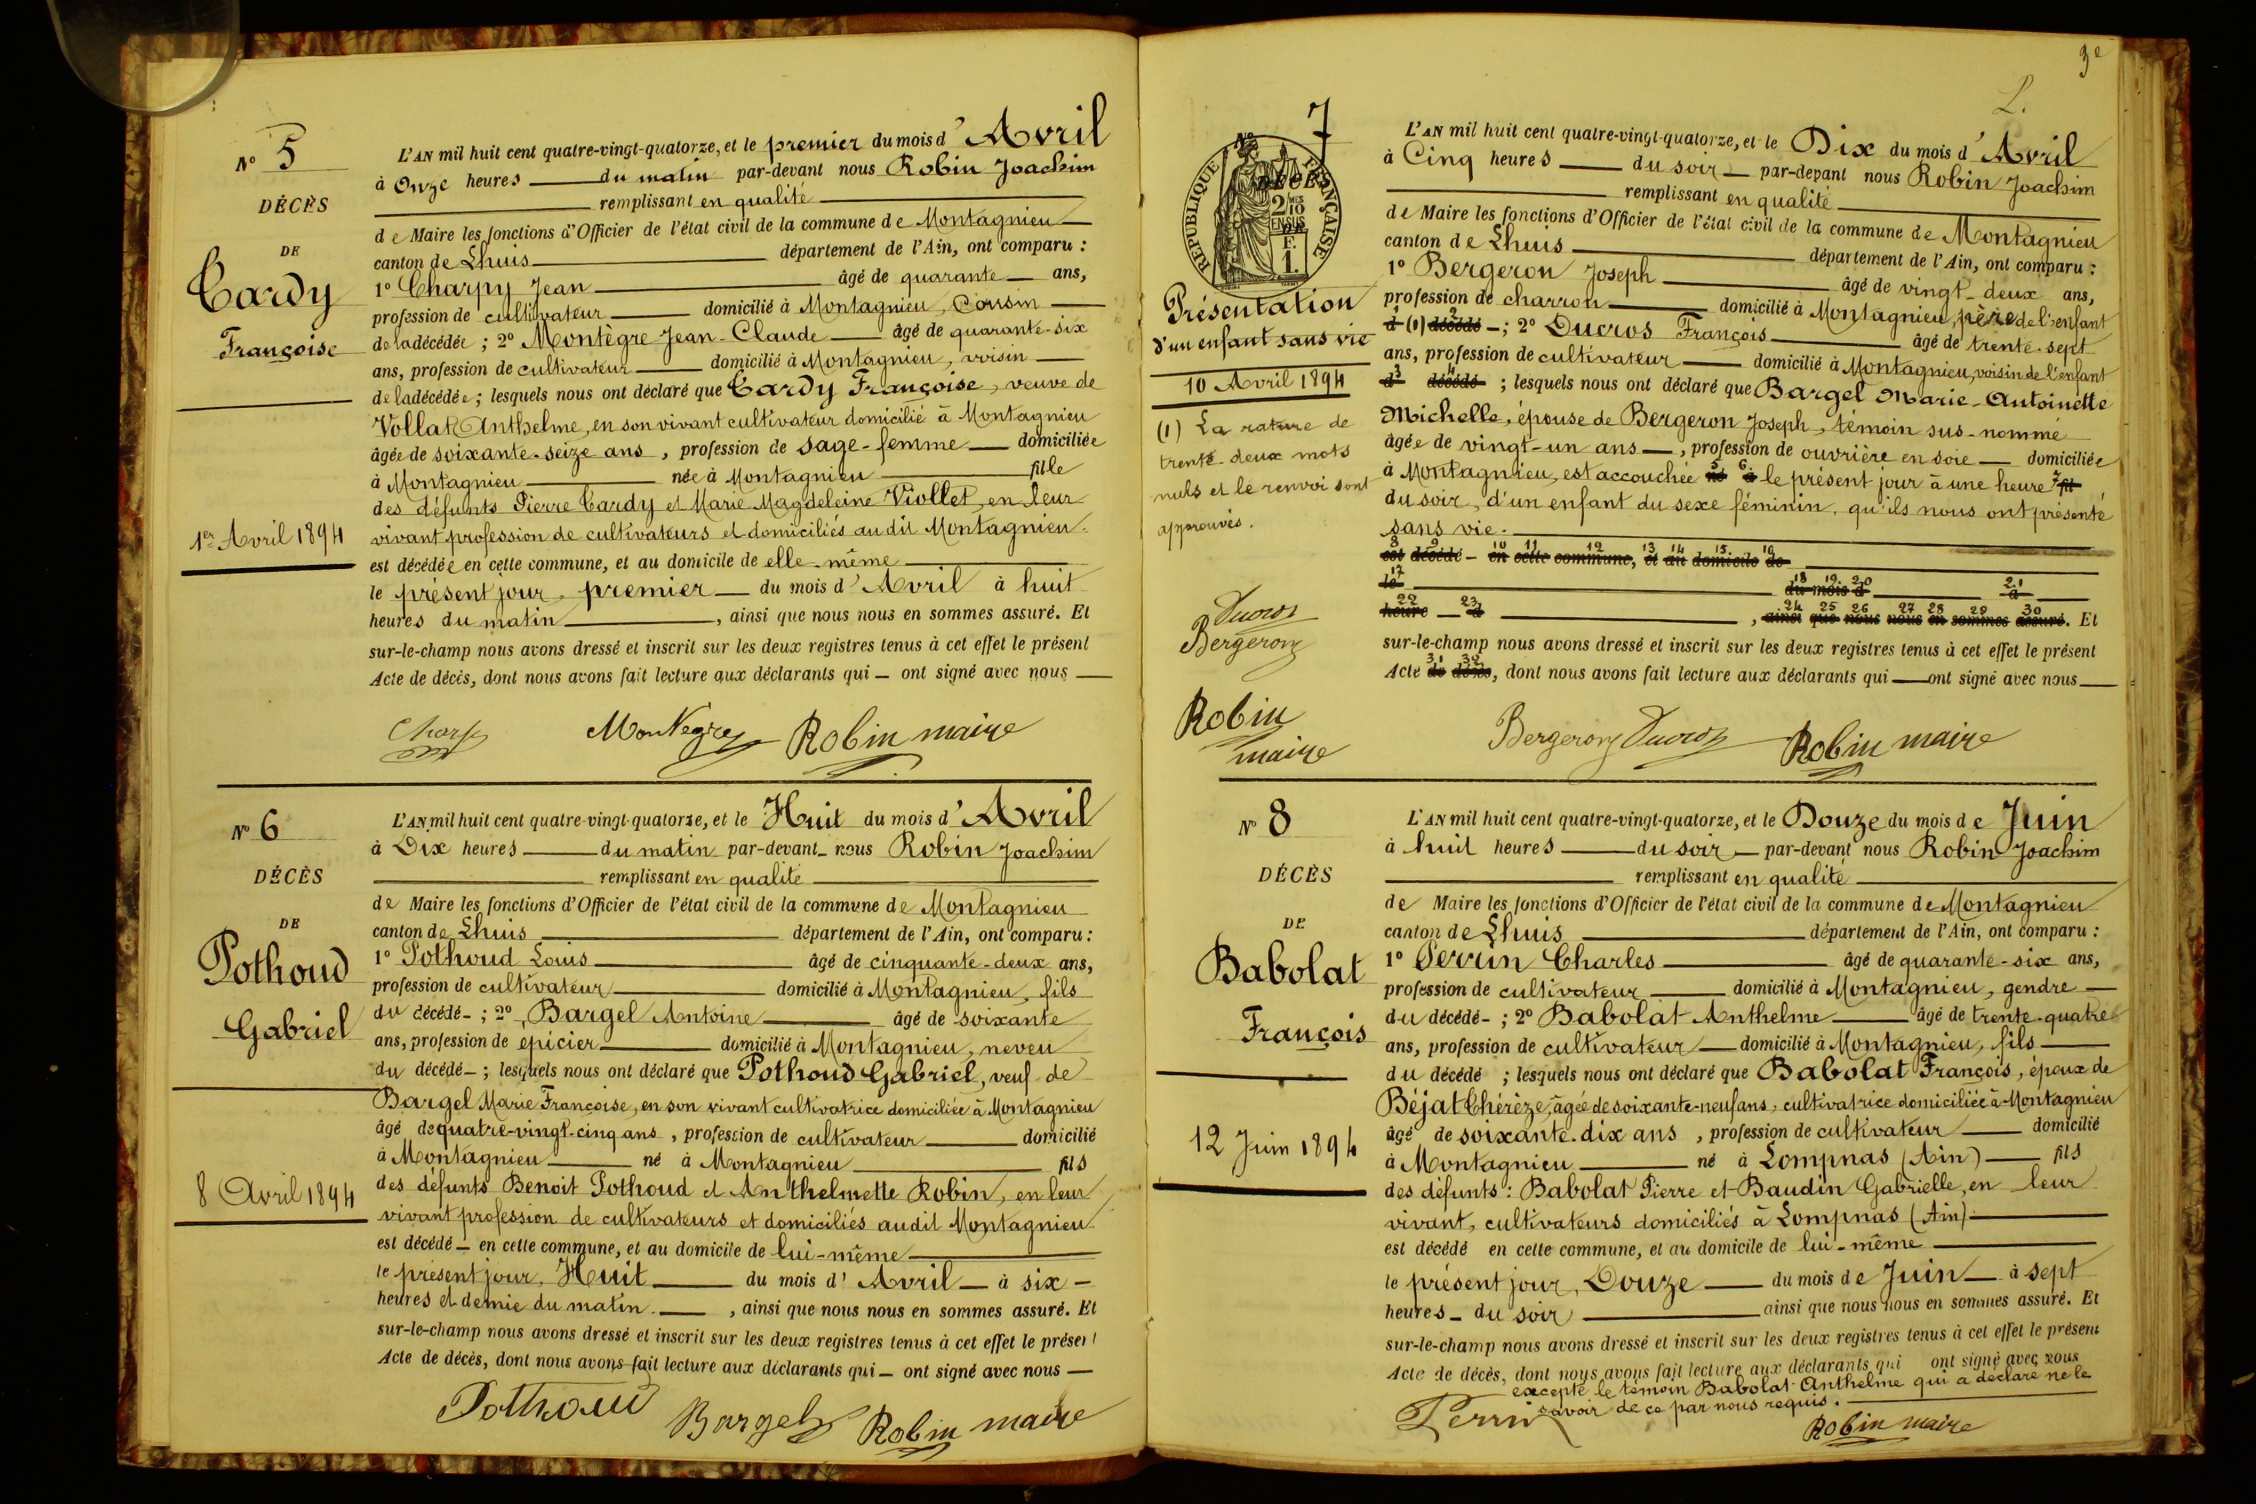 N° 5
DÉCÈS
DE
Cardy
Françoise
1er Avril 1894
L'AN mil huit cent quatre-vingt-quatorze, et le premier du mois d'Avril
à Onze heures du matin par-devant nous Robin Joachim
remplissant en qualité
de Maire les fonctions d'Officier de l'état civil de la commune de Montagnieu
canton de Lhuis département de l'Ain, ont comparu :
1° Charpy Jean âgé de quarante ans,
profession de cultivateur domicilié à Montagnieu, Cousin
de la décédée ; 2° Montègre Jean-Claude âgé de quarante-six
ans, profession de cultivateur domicilié à Montagnieu, voisin
de la décédée ; lesquels nous ont déclaré que Cardy Françoise, veuve de
Vollat Anthelme, en son vivant cultivateur domicilié à Montagnieu
âgée de soixante-seize ans, profession de sage-femme domiciliée
à Montagnieu née à Montagnieu fille
des défunts Pierre Cardy et Marie Magdeleine Viollet, en leur
vivant profession de cultivateurs et domiciliés au dit Montagnieu.
est décédée en cette commune, et au domicile de elle-même
le présent jour, premier du mois d'Avril à huit
heures du matin, ainsi que nous nous en sommes assuré. Et
sur-le-champ nous avons dressé et inscrit sur les deux registres tenus à cet effet le présent
Acte de décès, dont nous avons fait lecture aux déclarants qui – ont signé avec nous
Charpy Montegre Robin maire
N° 6
DÉCÈS
DE
Pothoud
Gabriel
8 Avril 1894
L'AN mil huit cent quatre-vingt-quatorze, et le Huit du mois d'Avril
à Dix heures du matin par-devant nous Robin Joachim
remplissant en qualité
de Maire les fonctions d'Officier de l'état civil de la commune de Montagnieu
canton de Lhuis département de l'Ain, ont comparu :
1° Pothoud Louis âgé de cinquante-deux ans,
profession de cultivateur domicilié à Montagnieu, fils
du décédé – ; 2° Bargel Antoine âgé de soixante
ans, profession de épicier domicilié à Montagnieu, neveu
du décédé – ; lesquels nous ont déclaré que Pothoud Gabriel, veuf de
Bargel Marie Françoise, en son vivant cultivatrice domiciliée à Montagnieu
âgé de quatre-vingt-cinq ans, profession de cultivateur domicilié
à Montagnieu né à Montagnieu fils
des défunts Benoit Pothoud et Anthelmette Robin, en leur
vivant profession de cultivateurs et domiciliés audit Montagnieu.
est décédé – en cette commune, et au domicile de lui-même
le présent jour, Huit du mois d'Avril à six
heures et demie du matin, ainsi que nous nous en sommes assuré. Et
sur-le-champ nous avons dressé et inscrit sur les deux registres tenus à cet effet le présent
Acte de décès, dont nous avons fait lecture aux déclarants qui – ont signé avec nous
Pothoud Bargel Robin maire
3e
L.
N° 7
RÉPUBLIQUE FRANÇAISE
DÉCÈS
2 MES
10
EN SUS
F.
1.
Présentation
d'un enfant sans vie
10 Avril 1894
(1) La rature de
trente-deux mots
nuls et le renvoi sont
approuvés.
Ducros
Bergeron
Robin
maire
L'AN mil huit cent quatre-vingt-quatorze, et le Dix du mois d'Avril
à Cinq heures du soir par-devant nous Robin Joachim
remplissant en qualité
de Maire les fonctions d'Officier de l'état civil de la commune de Montagnieu
canton de Lhuis département de l'Ain, ont comparu :
1° Bergeron Joseph âgé de vingt-deux ans,
profession de charron domicilié à Montagnieu, père de l'enfant
1 d (1) 2 décédé – ; 2° Ducros François âgé de trente-sept
ans, profession de cultivateur domicilié à Montagnieu, voisin de l'enfant
3 d 4 décédé ; lesquels nous ont déclaré que Bargel Marie-Antoinette
Michelle, épouse de Bergeron Joseph, témoin sus-nommé
âgée de vingt-un ans, profession de ouvrière en soie domiciliée
à Montagnieu, est accouchée 5 né 6 à le présent jour à une heure 7 fil
du soir, d'un enfant du sexe féminin, qu'ils nous ont présenté
sans vie.
8 est 9 décédé – 10 en 11 cette 12 commune, 13 et 14 au 15 domicile 16 de
17 le 18 du 19 mois 20 d 21 à
22 heure 23 d, 24 ainsi 25 que 26 nous 27 nous 28 en 29 sommes 30 assuré. Et
sur-le-champ nous avons dressé et inscrit sur les deux registres tenus à cet effet le présent
Acte 31 de 32 décès, dont nous avons fait lecture aux déclarants qui ont signé avec nous
Bergeron Ducros Robin maire
N° 8
DÉCÈS
DE
Babolat
François
12 Juin 1894
L'AN mil huit cent quatre-vingt-quatorze, et le Douze du mois de Juin
à huit heures du soir par-devant nous Robin Joachim
remplissant en qualité
de Maire les fonctions d'Officier de l'état civil de la commune de Montagnieu
canton de Lhuis département de l'Ain, ont comparu :
1° Perrin Charles âgé de quarante-six ans,
profession de cultivateur domicilié à Montagnieu, gendre
du décédé – ; 2° Babolat Anthelme âgé de trente-quatre
ans, profession de cultivateur domicilié à Montagnieu, fils
du décédé ; lesquels nous ont déclaré que Babolat François, époux de
Béjat Thérèze, âgée de soixante-neuf ans, cultivatrice domiciliée à Montagnieu
âgé de soixante-dix ans, profession de cultivateur domicilié
à Montagnieu né à Lompnas (Ain) fils
des défunts : Babolat Pierre et Baudin Gabrielle, en leur
vivant, cultivateurs domiciliés à Lompnas (Ain)
est décédé en cette commune, et au domicile de lui-même
le présent jour, Douze du mois de Juin à sept
heures du soir ainsi que nous nous en sommes assuré. Et
sur-le-champ nous avons dressé et inscrit sur les deux registres tenus à cet effet le présent
Acte de décès, dont nous avons fait lecture aux déclarants qui ont signé avec nous
excepté le témoin Babolat Anthelme qui a déclaré ne le
savoir de ce par nous requis.
Perrin Robin maire